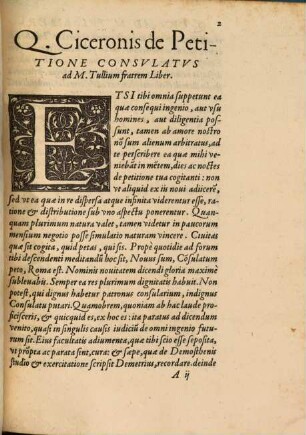 2
Q. Ciceronis de Peti-
TIONE CONSVLATVS
ad M. Tullium fratrem Liber.
ETSI tibi omnia suppetunt ea
quæ consequi ingenio, aut vsu
homines, aut diligentia pos-
sunt, tamen ab amore nostro
nõ sum alienum arbitratus, ad
te perscribere ea quæ mihi ve-
niebãt in mẽtem, dies ac noctes
de petitione tua cogitanti: non
vt aliquid ex iis noui adiscerẽ,
sed vt ea quæ in re dispersa atque infinita viderentur esse, ra-
tione & distributione sub vno aspectu ponerentur. Quan-
quam plurimum natura valet, tamen videtur in paucorum
mensium negotio posse simulatio naturam vincere. Ciuitas
quæ sit cogita, quid petas, qui sis. Propè quotidie ad forum
tibi descendenti meditandũ hoc sit, Nouus sum, Cõsulatum
peto, Roma est. Nominis nouitatem dicendi gloria maximè
subleuabit. Semper ea res plurimum dignitatis habuit. Non
potest, qui dignus habetur patronus consularium, indignus
Consulatu putari. Quamobrem, quoniam ab hac laude pro-
ficisceris, & quicquid es, ex hoc es: ita paratus ad dicendum
venito, quasi in singulis causis iudiciũ de omni ingenio futu-
rum sit. Eius facultatis adiumenta, quæ tibi scio esse seposita,
vt prõpta ac parata sint, cura: & sæpe, quæ de Demosthenis
studio & exercitatione scripsit Demetrius, recordare. deinde
A ij